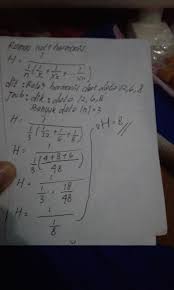 Rumus
H = 1
1/n (1/x₁ + 1/x₂ + ... 1/xn)
dit : Rata² harmonis dari data 12, 6, 8
Jwb : dik : data 12, 6, 8
banyak data (n) = 3
H = 1
1/3 (1/12 + 1/6 + 1/8)
H = 1
1/3 (4+8+6 / 48)
H = 1
1/3 . 18/48
H = 1
1/8
H = 8 //